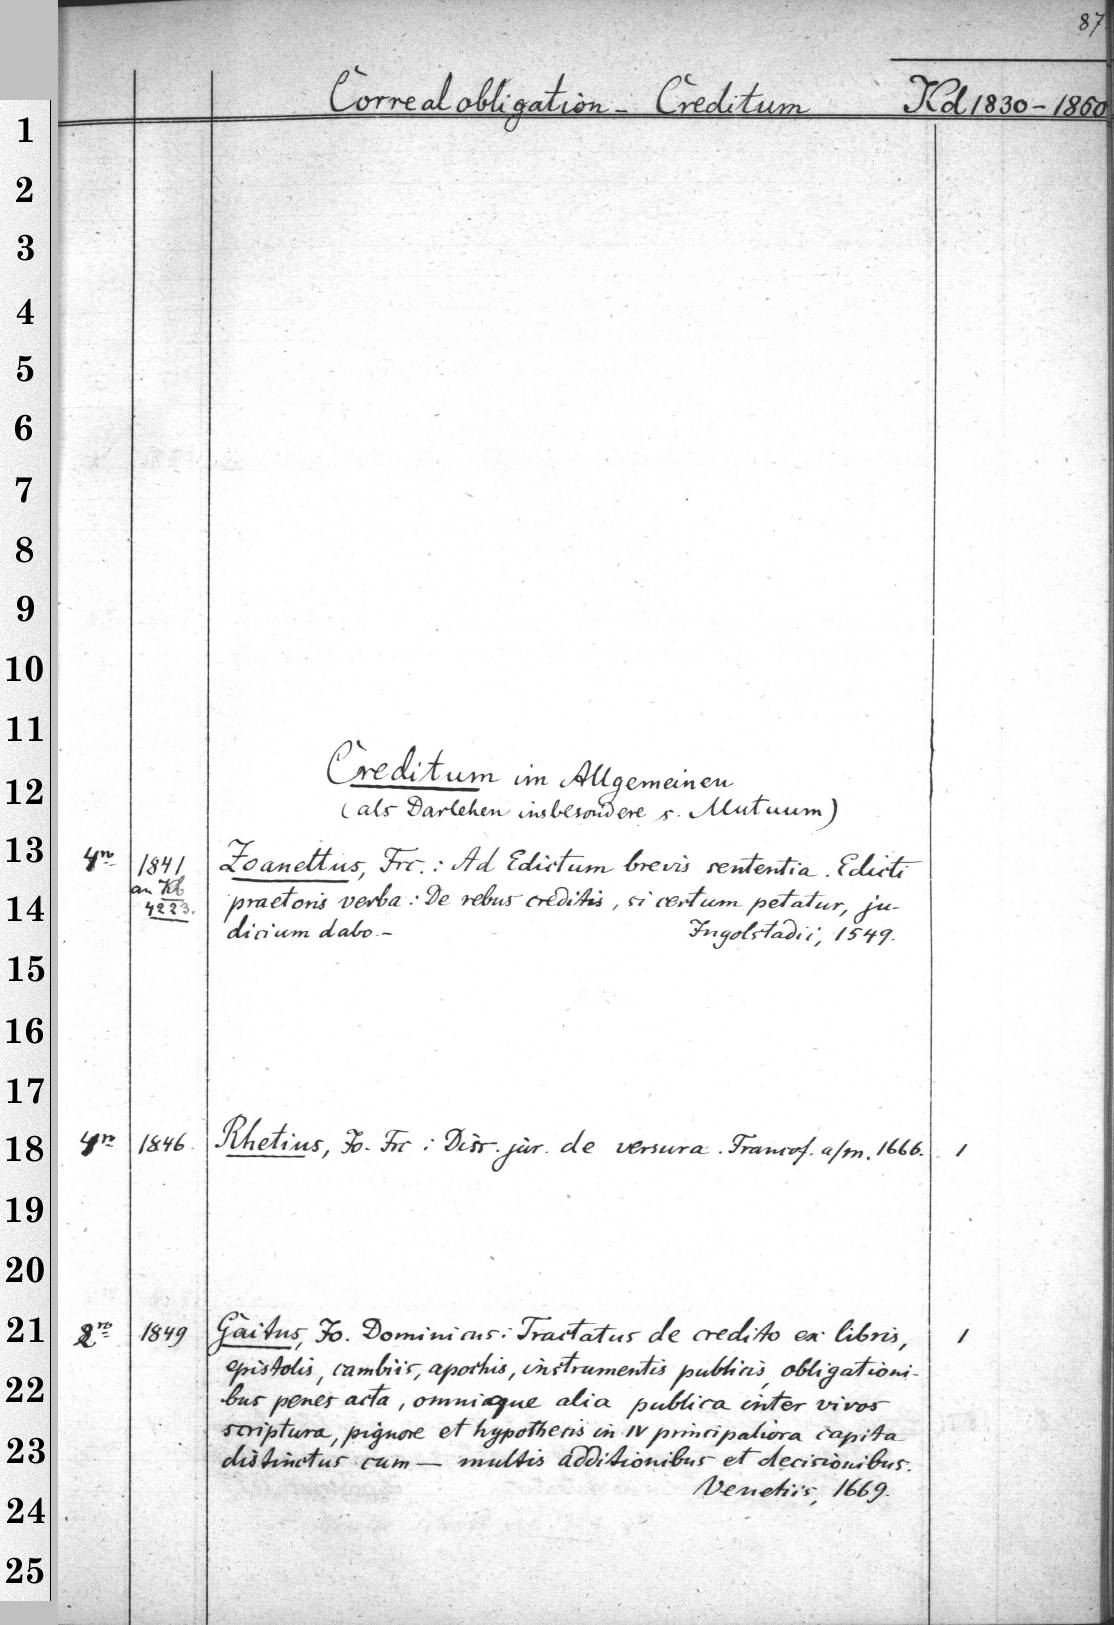 87
Correalobligation - Creditum Kd 1830 - 1860
1
2
3
4
5
6
7
8
9
10
11
Creditum im Allgemeinen
12
(als Darlehen insbesondere s. Mutuum)
13
4ᵒ 1841 Zoanettus, Frc.: Ad Edictum brevis sententia. Edicti
an Kb
14
4223. praetoris verba: De rebus creditis, si certum petatur, ju-
dicium dabo.- Ingolstadii, 1549.
15
16
17
18
4ᵒ 1846. Rhetius, Jo. Frc: Diss. jur. de versura. Francof. a/m. 1666. 1
19
20
21
2ᵒ 1849 Gaitus, Jo. Dominicus: Tractatus de credito ex libris, 1
epistolis, cambiis, apochis, instrumentis publicis, obligationi-
22
bus penes acta, omniaque alia publica inter vivos
scriptura, pignore et hypothecis in IV principaliora capita
23
distinctus cum — multis additionibus et decisionibus.
Venetiis, 1669.
24
25